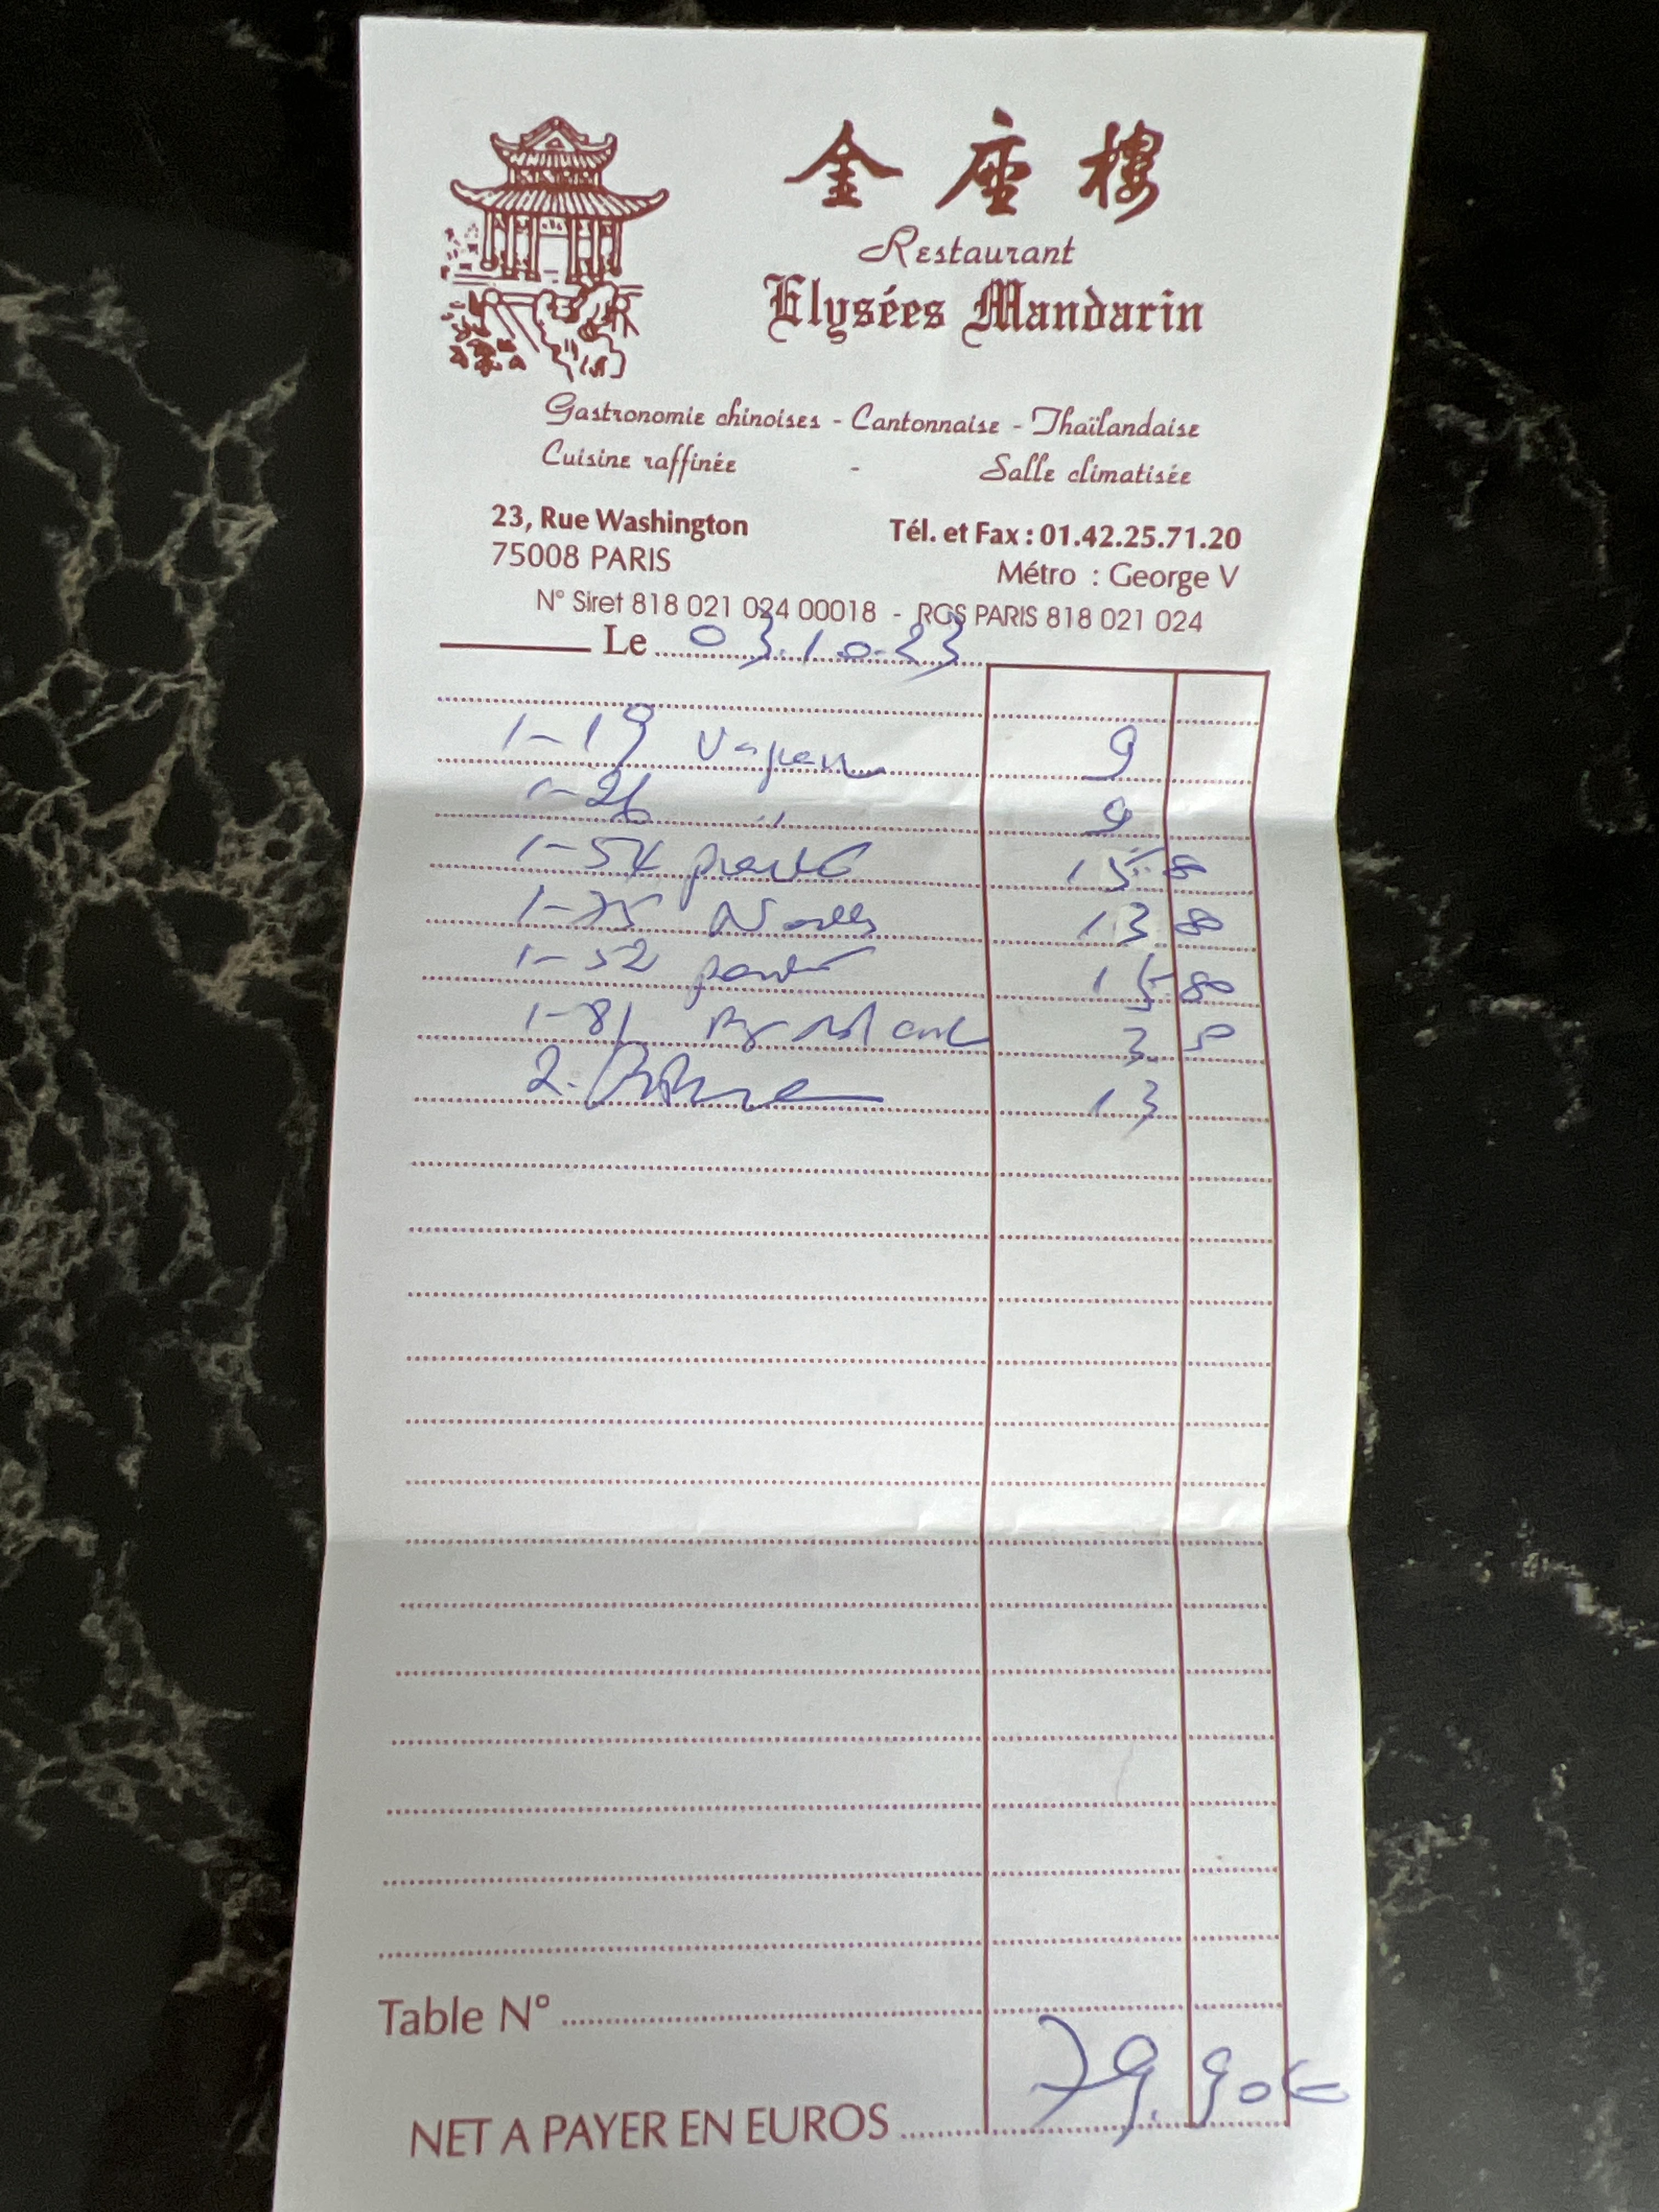 金座樓
Restaurant
Elysées Mandarin
Gastronomie chinoises - Cantonnaise - Thaïlandaise
Cuisine raffinée - Salle climatisée
23, Rue Washington Tél. et Fax : 01.42.25.71.20
75008 PARIS Métro : George V
N° Siret 818 021 024 00018 - RCS PARIS 818 021 024
Le 03.10.23
1-19 Vapeur 9
1-26 " 9
1-54 15 8
1-75 13 80
1-52 15 80
1-81 3. 50
2. 13
Table N°
NET A PAYER EN EUROS 79.90€